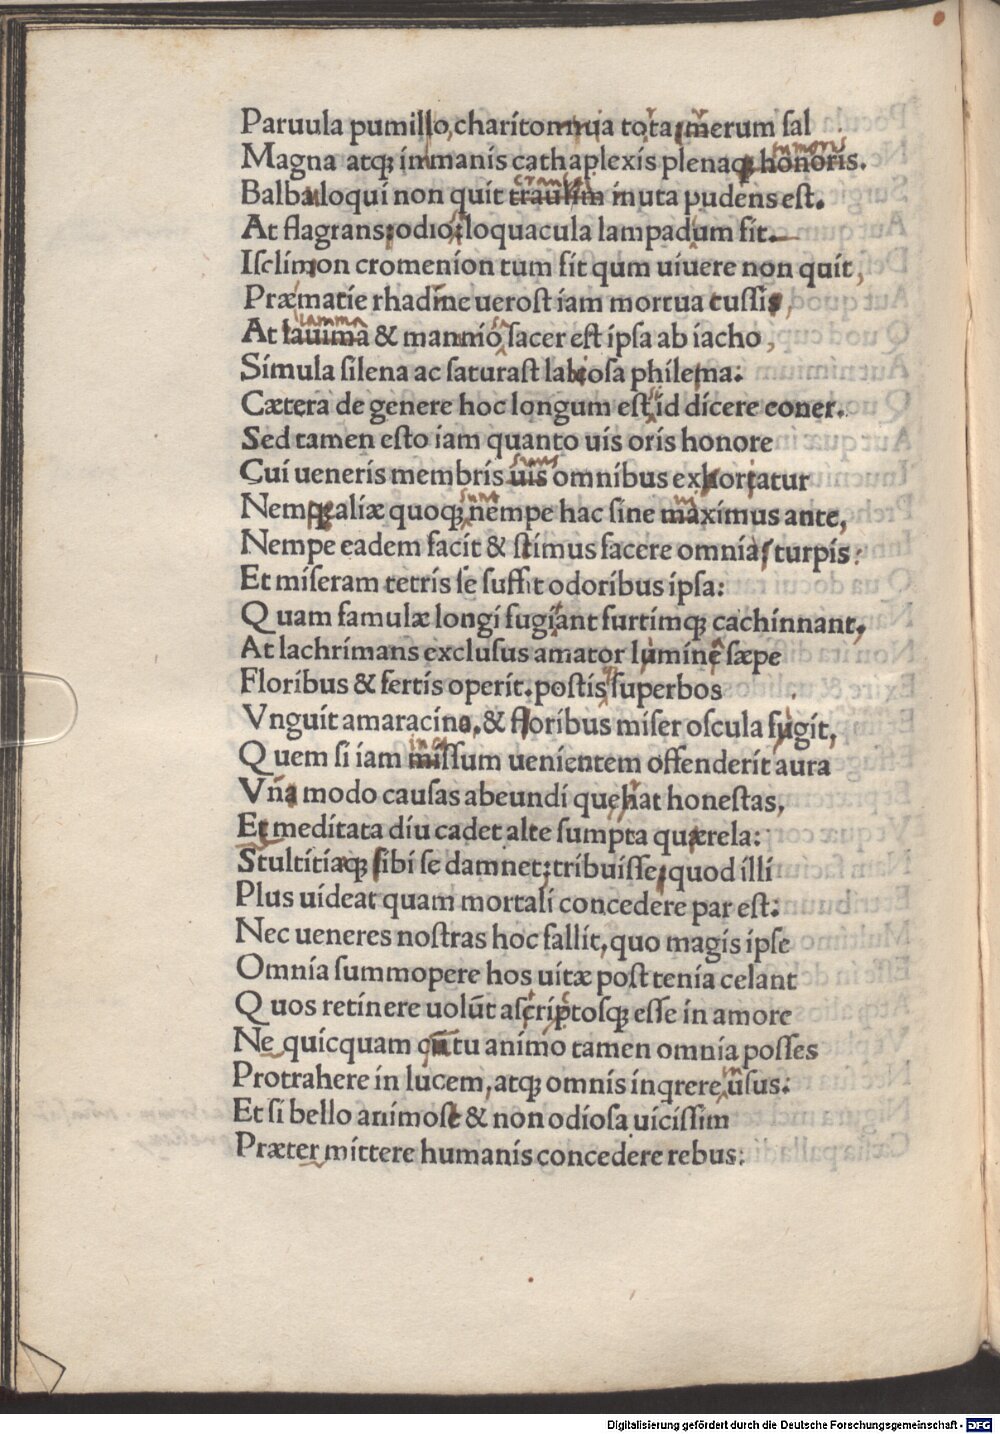 Paruula pumillo,charitomnia tota;merum sal
Magna atq; inmanis cathaplexis plenaq; honoris.
Balba loqui non quit traulim muta pudens est.
At flagrans:odio;loquacula lampadum fit.
Isclimon cromenion tum fit qum uiuere non quit,
Præmatie rhadine uerost iam mortua tussis,
At lauima & manmio sacer est ipsa ab iacho,
Simula silena ac saturast labiosa philema:
Cætera de genere hoc longum est id dicere coner.
Sed tamen esto iam quanto uis oris honore
Cui ueneris membris uis omnibus exhortatur
Nempe aliæ quoq; nempe hac sine maximus ante,
Nempe eadem facit & stimus facere omnia turpis:
Et miseram tetris se suffit odoribus ipsa:
Quam famulæ longi fugiant furtimq; cachinnant,
At lachrimans exclusus amator lumine sæpe
Floribus & sertis operit.postis superbos
Vnguit amaracino,& floribus miser oscula fugit,
Quem si iam missum uenientem offenderit aura
Vña modo causas abeundi quehat honestas,
Et meditata diu cadet alte sumpta quærela:
Stultitiaq; sibi se damnet;tribuisse;quod illi
Plus uideat quam mortali concedere par est:
Nec ueneres nostras hoc fallit,quo magis ipse
Omnia summopere hos uitæ post tenia celant
Quos retinere uolūt ascriptosq; esse in amore
Ne quicquam qm̄ tu animo tamen omnia posses
Protrahere in lucem,atq; omnis inqrere usus:
Et si bello animost & non odiosa uicissim
Præter mittere humanis concedere rebus:
Digitalisierung gefördert durch die Deutsche Forschungsgemeinschaft - DFG